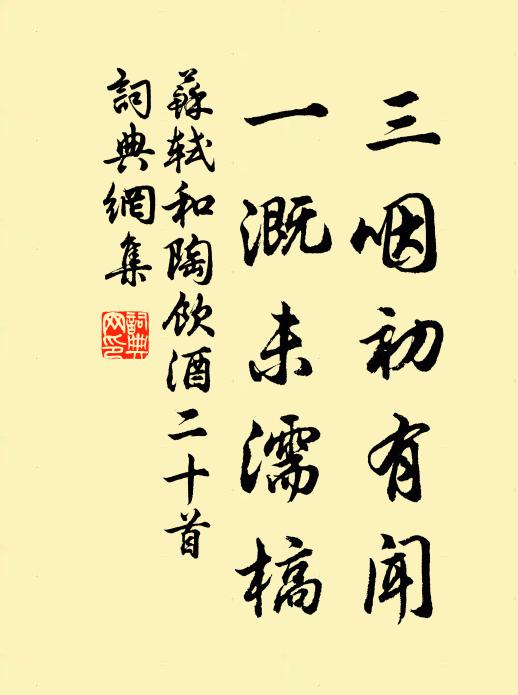 三咽初有闻
一溉未濡槁
蘇軾和陶饮酒二十首
詞典網集
詞典
网印